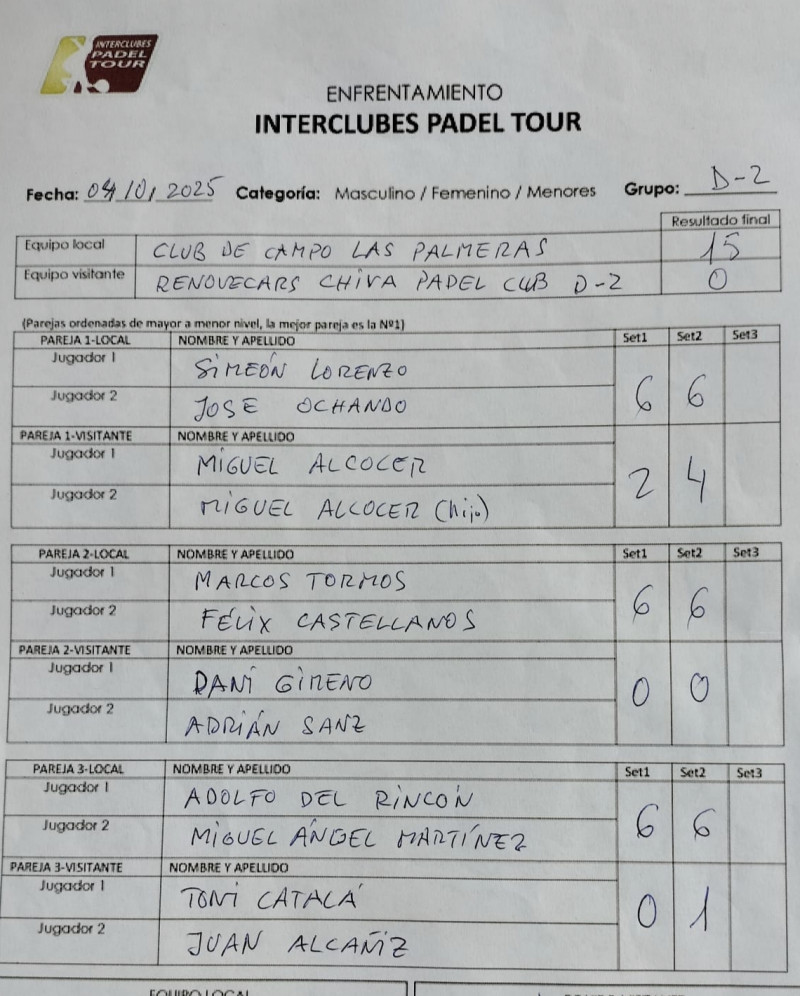 INTERCLUBES
PADEL
TOUR
ENFRENTAMIENTO
INTERCLUBES PADEL TOUR
Fecha: 04/10/2025 Categoría: Masculino / Femenino / Menores Grupo: D-2
Resultado final
Equipo local CLUB DE CAMPO LAS PALMERAS 15
Equipo visitante RENOVECARS CHIVA PADEL CLUB D-2 0
(Parejas ordenadas de mayor a menor nivel, la mejor pareja es la Nº1)
PAREJA 1-LOCAL NOMBRE Y APELLIDO Set1 Set2 Set3
Jugador 1 SIMEÓN LORENZO
Jugador 2 JOSE OCHANDO 6 6
PAREJA 1-VISITANTE NOMBRE Y APELLIDO
Jugador 1 MIGUEL ALCOCER
Jugador 2 MIGUEL ALCOCER (hijo) 2 4
PAREJA 2-LOCAL NOMBRE Y APELLIDO Set1 Set2 Set3
Jugador 1 MARCOS TORMOS
Jugador 2 FÉLIX CASTELLANOS 6 6
PAREJA 2-VISITANTE NOMBRE Y APELLIDO
Jugador 1 DANI GIMENO
Jugador 2 ADRIÁN SANZ 0 0
PAREJA 3-LOCAL NOMBRE Y APELLIDO Set1 Set2 Set3
Jugador 1 ADOLFO DEL RINCÓN
Jugador 2 MIGUEL ÁNGEL MARTÍNEZ 6 6
PAREJA 3-VISITANTE NOMBRE Y APELLIDO
Jugador 1 TONI CATALÁ
Jugador 2 JUAN ALCAÑIZ 0 1
EQUIPO LOCAL